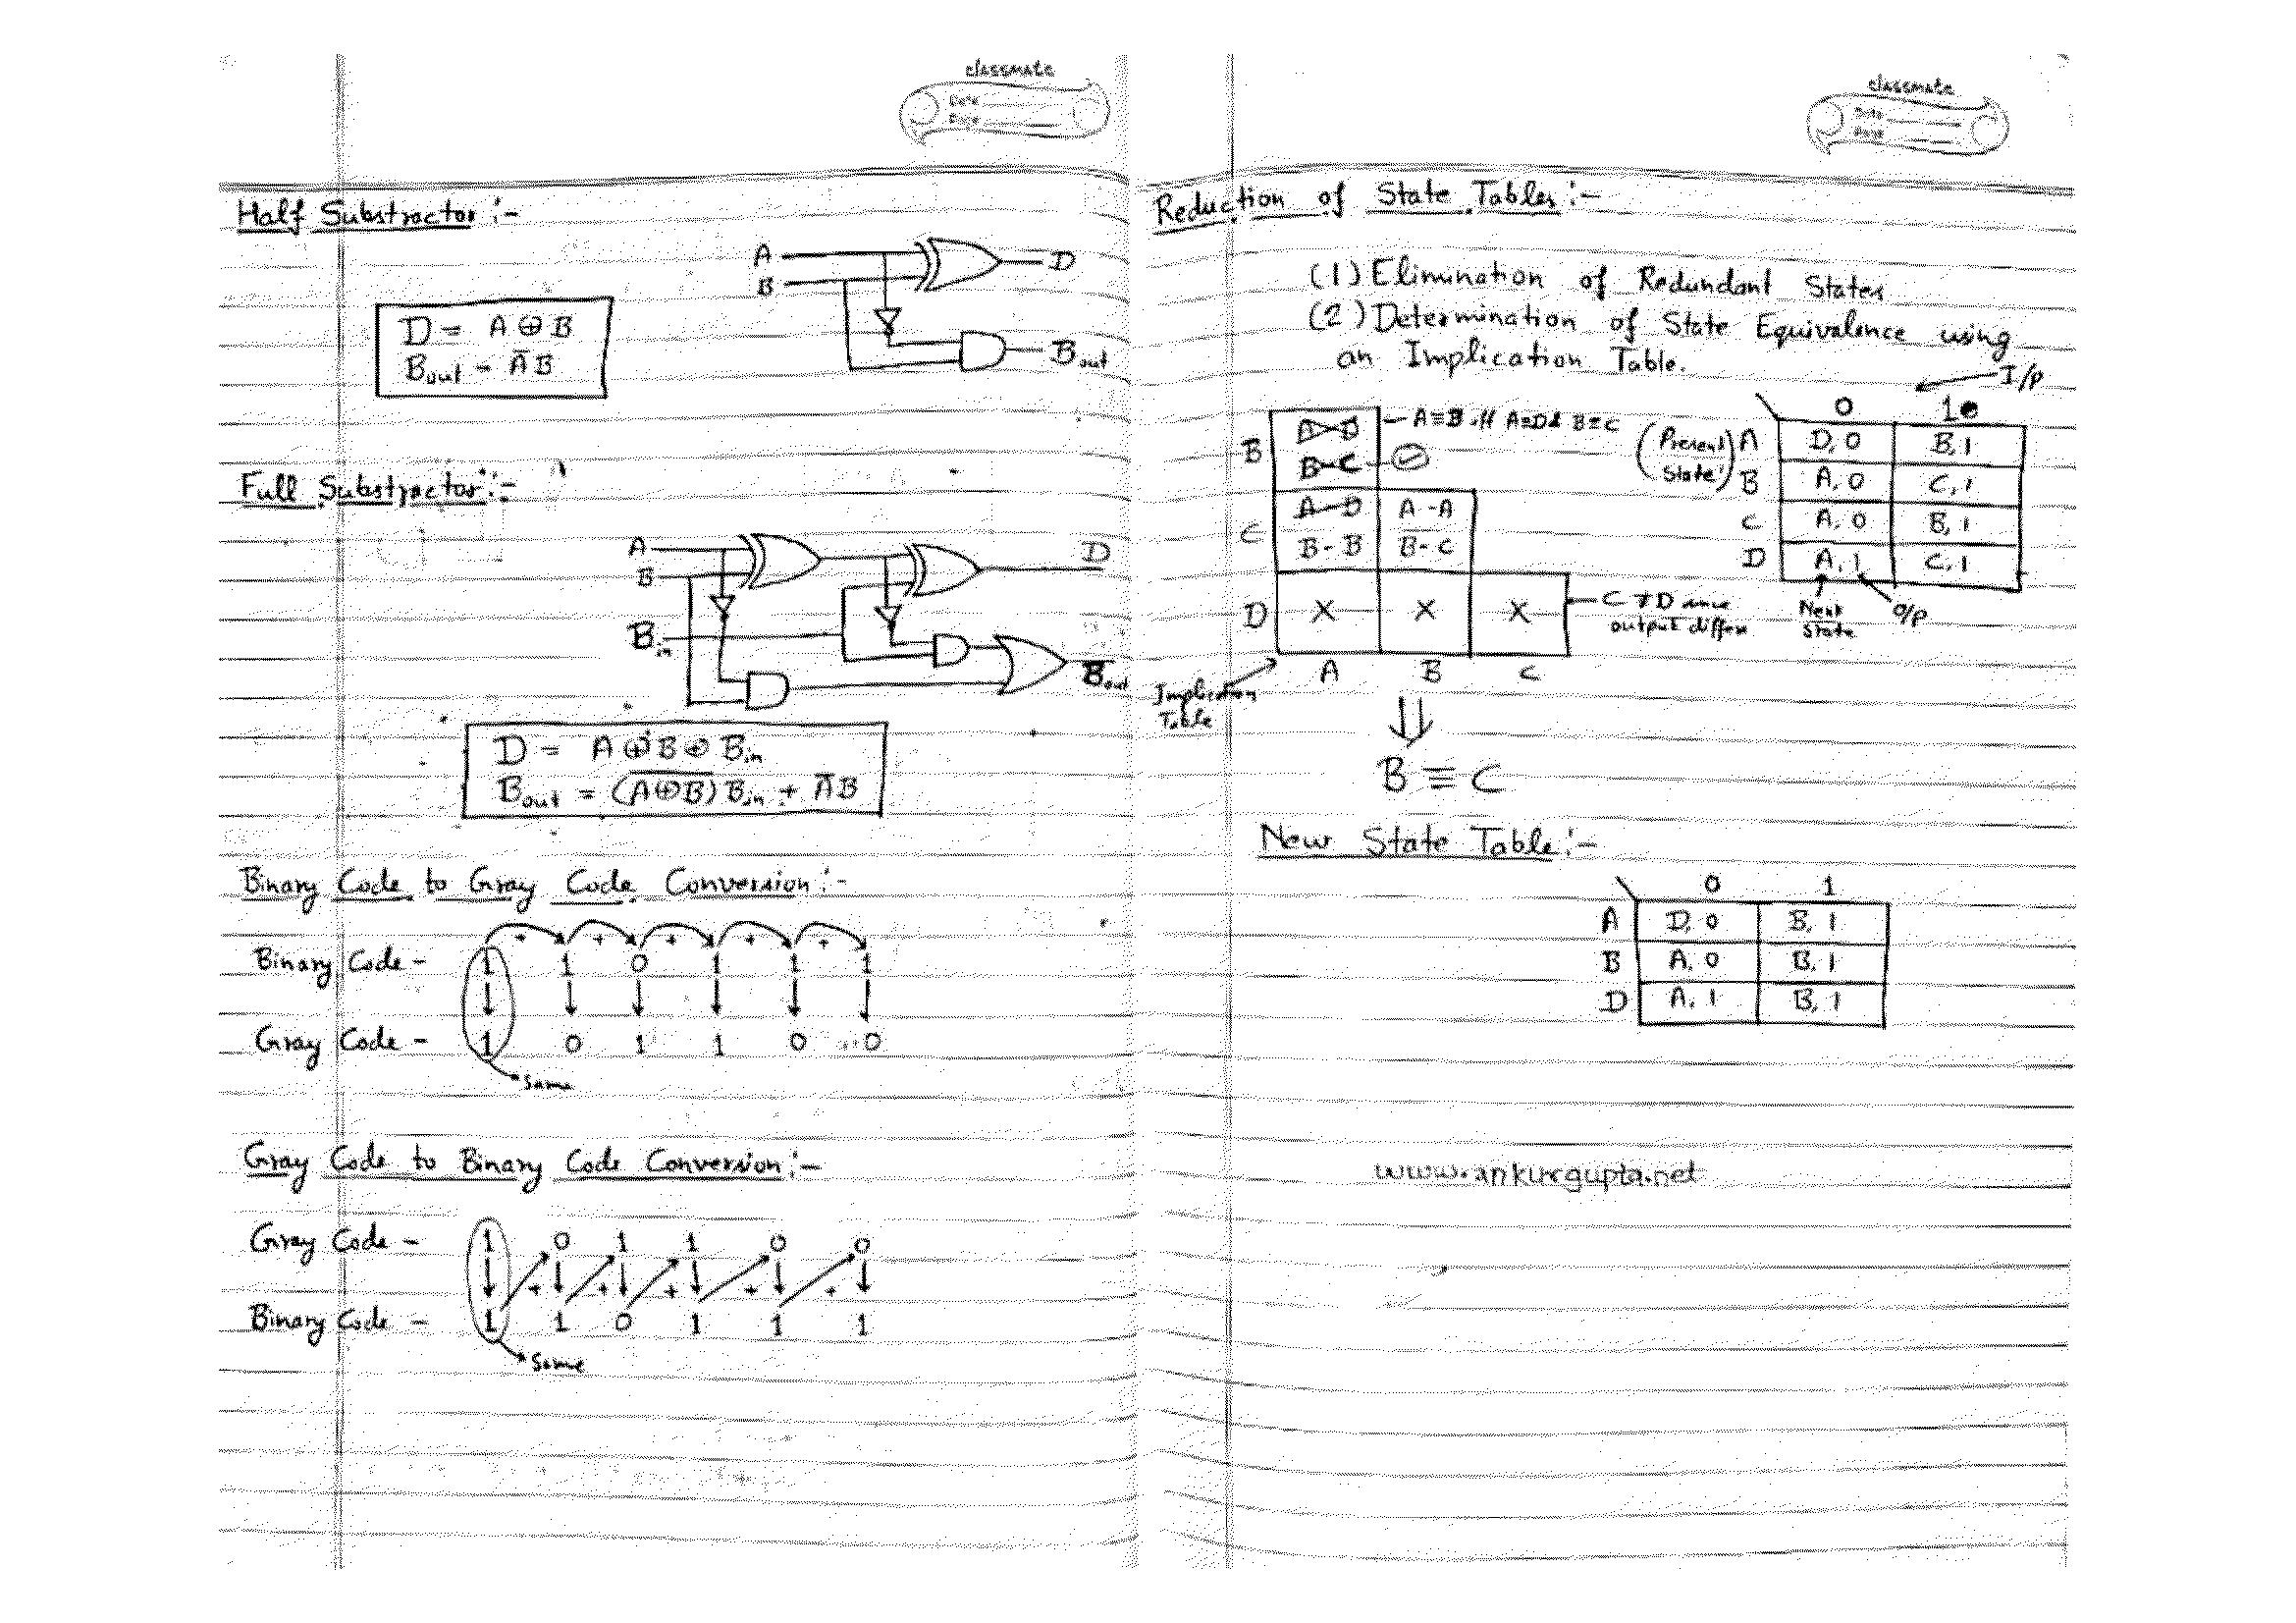 classmate
Date
Page
Half Substractor :-
A
B
D
Bout
D = A ⊕ B
Bout = A̅B
Full Substractor :-
A
B
Bin
D
Bout
D = A ⊕ B ⊕ Bin
Bout = (A̅ ̅⊕̅ ̅B̅) Bin + A̅B
Binary Code to Gray Code Conversion :-
+ + + + +
Binary Code - 1 1 0 1 1 1
Gray Code - 1 0 1 1 0 0
Same
Gray Code to Binary Code Conversion :-
Gray Code - 1 0 1 1 0 0
+ + + + +
Binary Code - 1 1 0 1 1 1
Same
classmate
Date
Page
Reduction of State Tables :-
(1) Elimination of Redundant States
(2) Determination of State Equivalence using
an Implication Table.
I/p
B A-D — A≡B iff A≡D & B≡C
B-C
C A-D A-A
B-B B-C
D X X X
C ≢ D since
output differ
A B C
Implication
Table
0 1
(Present State) A D, 0 B, 1
B A, 0 C, 1
C A, 0 B, 1
D A, 1 C, 1
Next
State
O/p
B ≡ C
New State Table :-
0 1
A D, 0 B, 1
B A, 0 B, 1
D A, 1 B, 1
www.ankurgupta.net